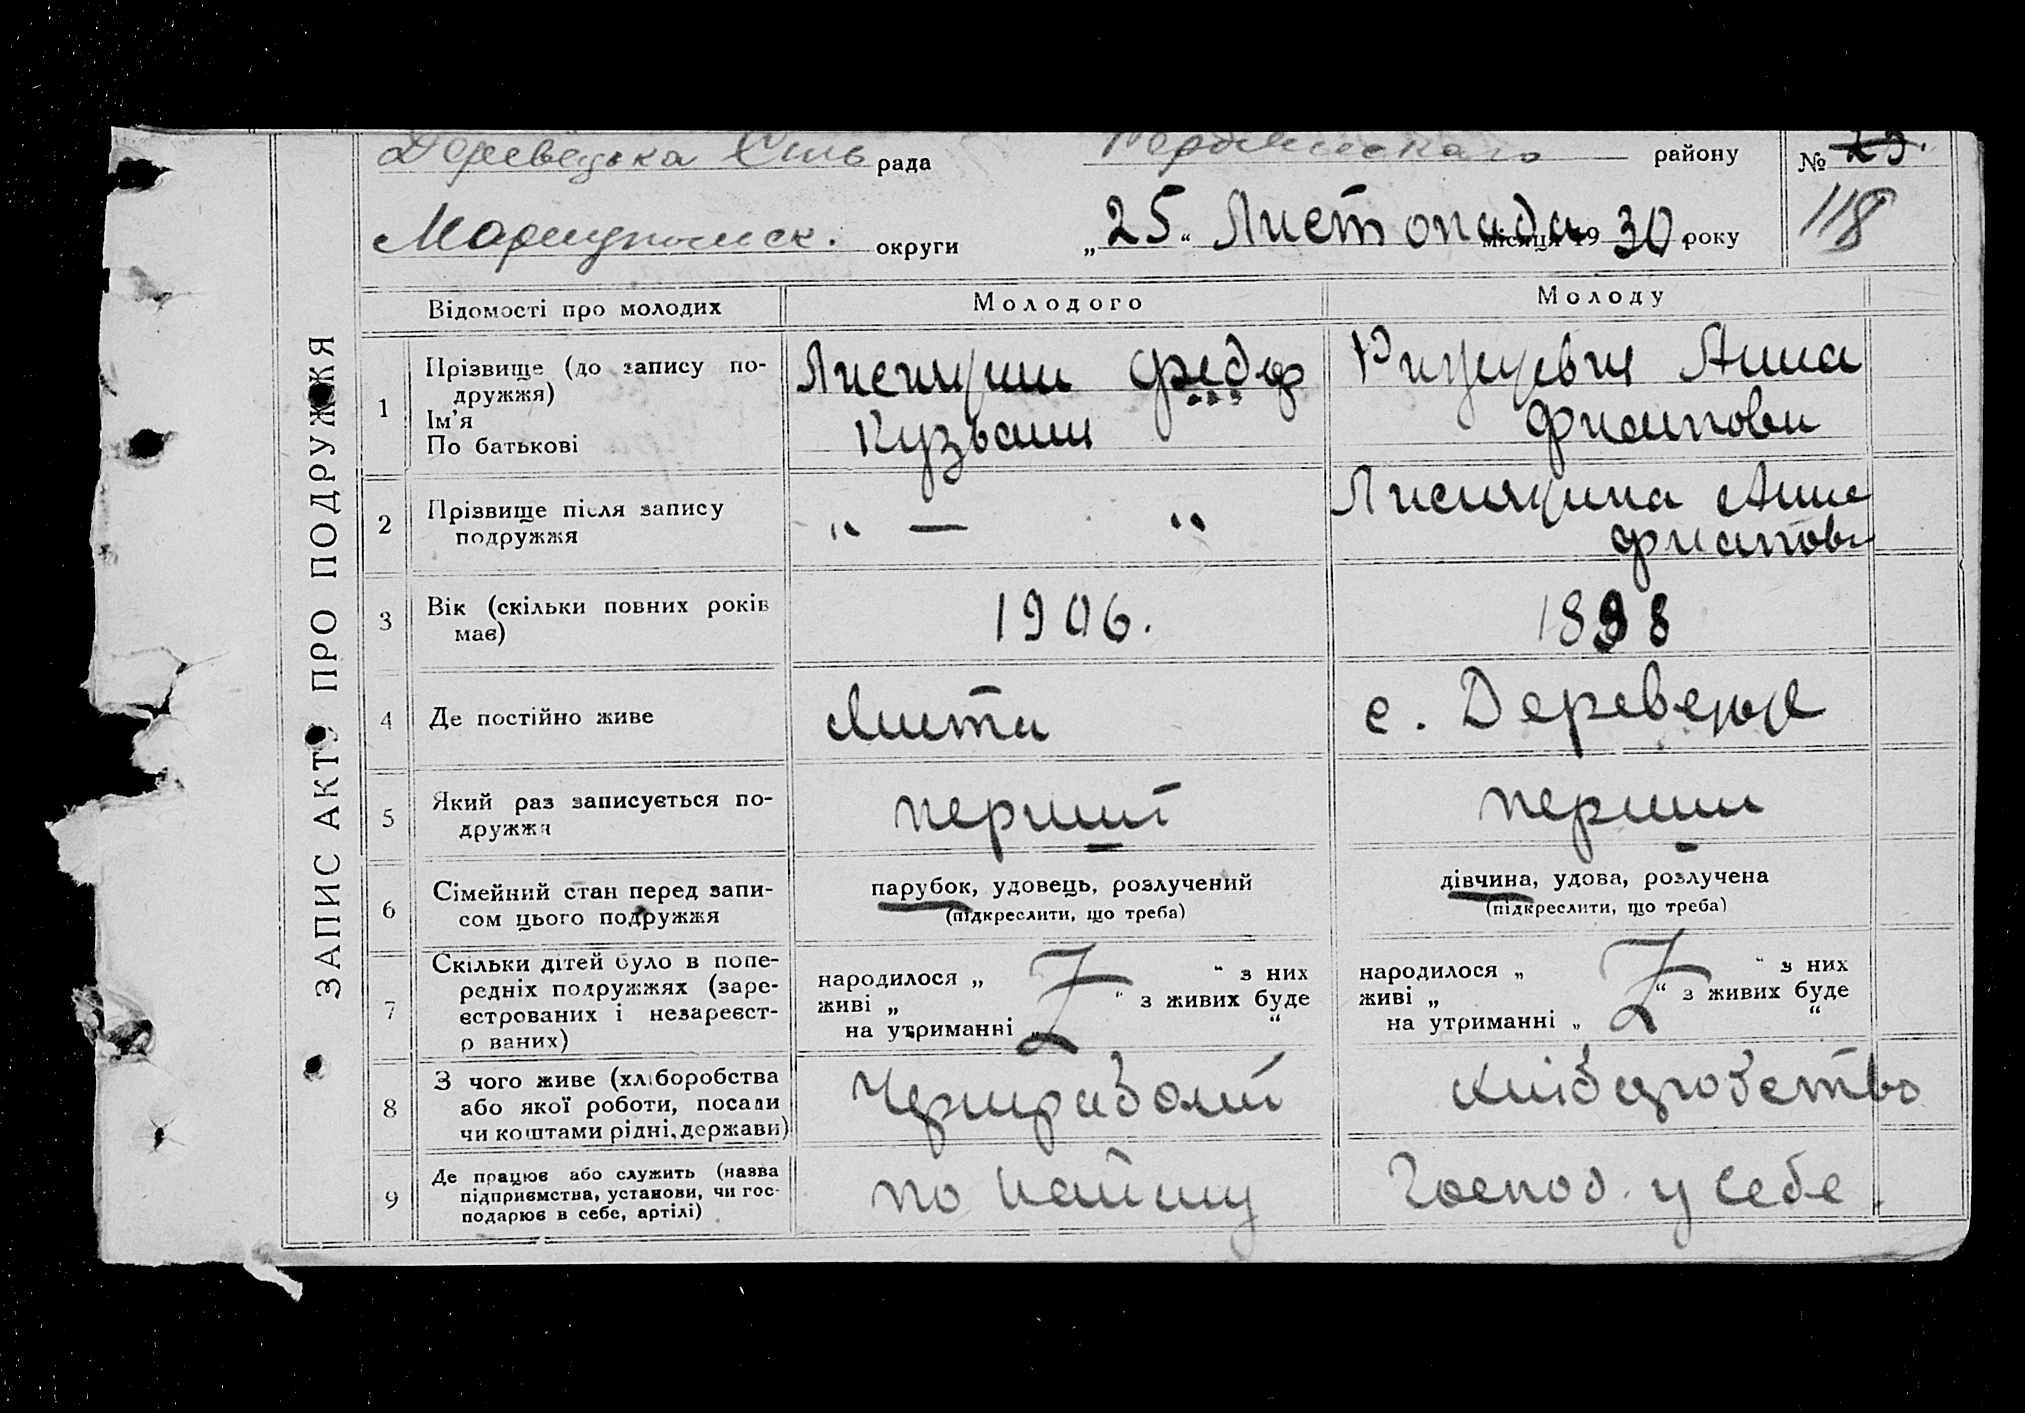 Деревецька Сіль рада району № 23.
Мариупольск. округи „25“ Листопада місяця 1930 року 118
ЗАПИС АКТУ ПРО ПОДРУЖЖЯ
Відомості про молодих Молодого Молоду
1 Прізвище (до запису по-
дружжя)
Ім'я
По батькові
Федор
Кузьмич
Анна
Филипови
2 Прізвище після запису
подружжя
„ — “
Анна
Филипов
3 Вік (скільки повних років
має)
1906. 1898
4 Де постійно живе
с. Деревецьке
5 Який раз записується по-
дружжя
перший перший
6 Сімейний стан перед запи-
сом цього подружжя
парубок, удовець, розлучений
(підкреслити, що треба)
дівчина, удова, розлучена
(підкреслити, що треба)
7 Скільки дітей було в попе-
редніх подружжях (заре-
єстрованих і незареєст-
р ваних)
народилося „ Z “ з них
живі „ “ з живих буде
на утриманні „ “
народилося „ Z “ з них
живі „ “ з живих буде
на утриманні „ “
8 З чого живе (хліборобства
або якої роботи, посади
чи коштами рідні, держави)
9 Де працює або служить (назва
підприємства, установи, чи гос-
подарює в себе, артілі)
по найму Господ. у себе.